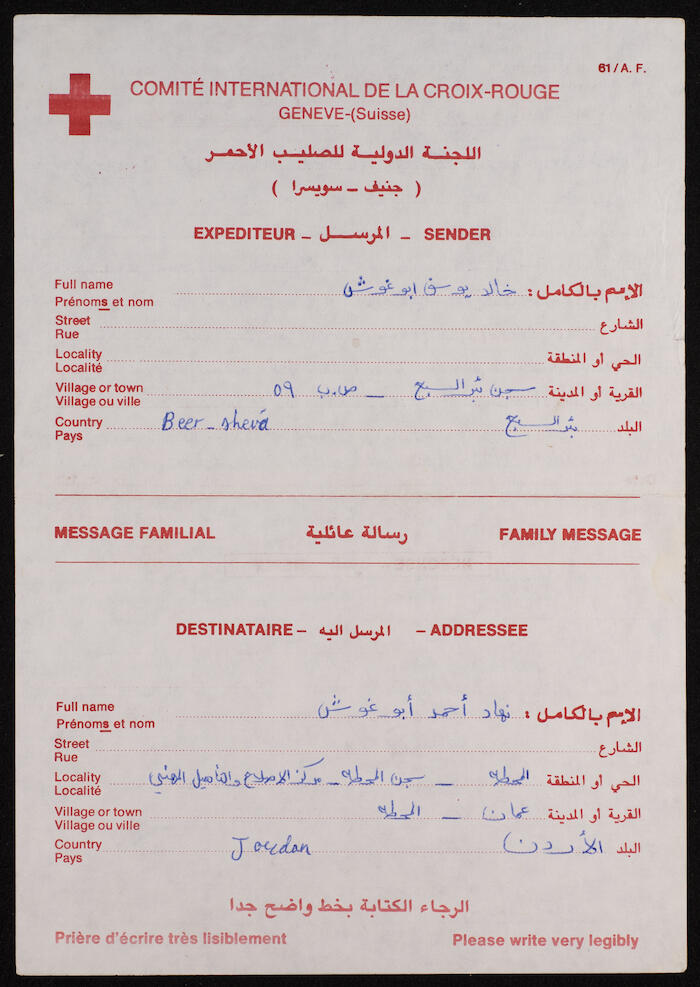 61/A. F.
COMITÉ INTERNATIONAL DE LA CROIX-ROUGE
GENEVE-(Suisse)
اللجنة الدولية للصليب الأحمر
( جنيف - سويسرا )
EXPEDITEUR - المرسل - SENDER
Full name الإسم بالكامل : خالد يوسف ابو غوش
Prénoms et nom
Street الشارع
Rue
Locality الحي او المنطقة
Localité
Village or town القرية او المدينة سجن بئر السبع - ص.ب ٥٩
Village ou ville
Country Beer-sheva البلد بئر السبع
Pays
MESSAGE FAMILIAL رسالة عائلية FAMILY MESSAGE
DESTINATAIRE - المرسل اليه - ADDRESSEE
Full name الإسم بالكامل : نهاد أحمد أبو غوش
Prénoms et nom
Street الشارع
Rue
Locality الحي او المنطقة المحطة - سجن المحطة - مركز الاصلاح والتأهيل المهني
Localité
Village or town القرية او المدينة عمان - المحطة
Village ou ville
Country Jordan البلد الأردن
Pays
الرجاء الكتابة بخط واضح جدا
Prière d'écrire très lisiblement Please write very legibly